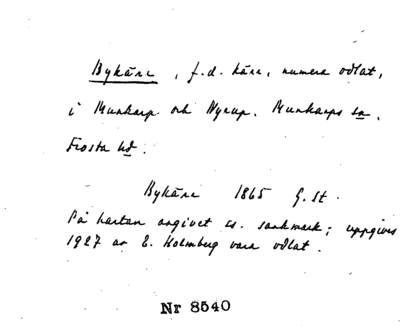 Bykärr, f.d. kärr, numera odlat,
i Munkarp och Nyrup. Munkarps sn.
Frosta hd.
Bykärr 1865 G.St.
På kartan angivet ss. sankmark; uppgives
1927 av E. Holmberg vara odlat.
Nr 8540